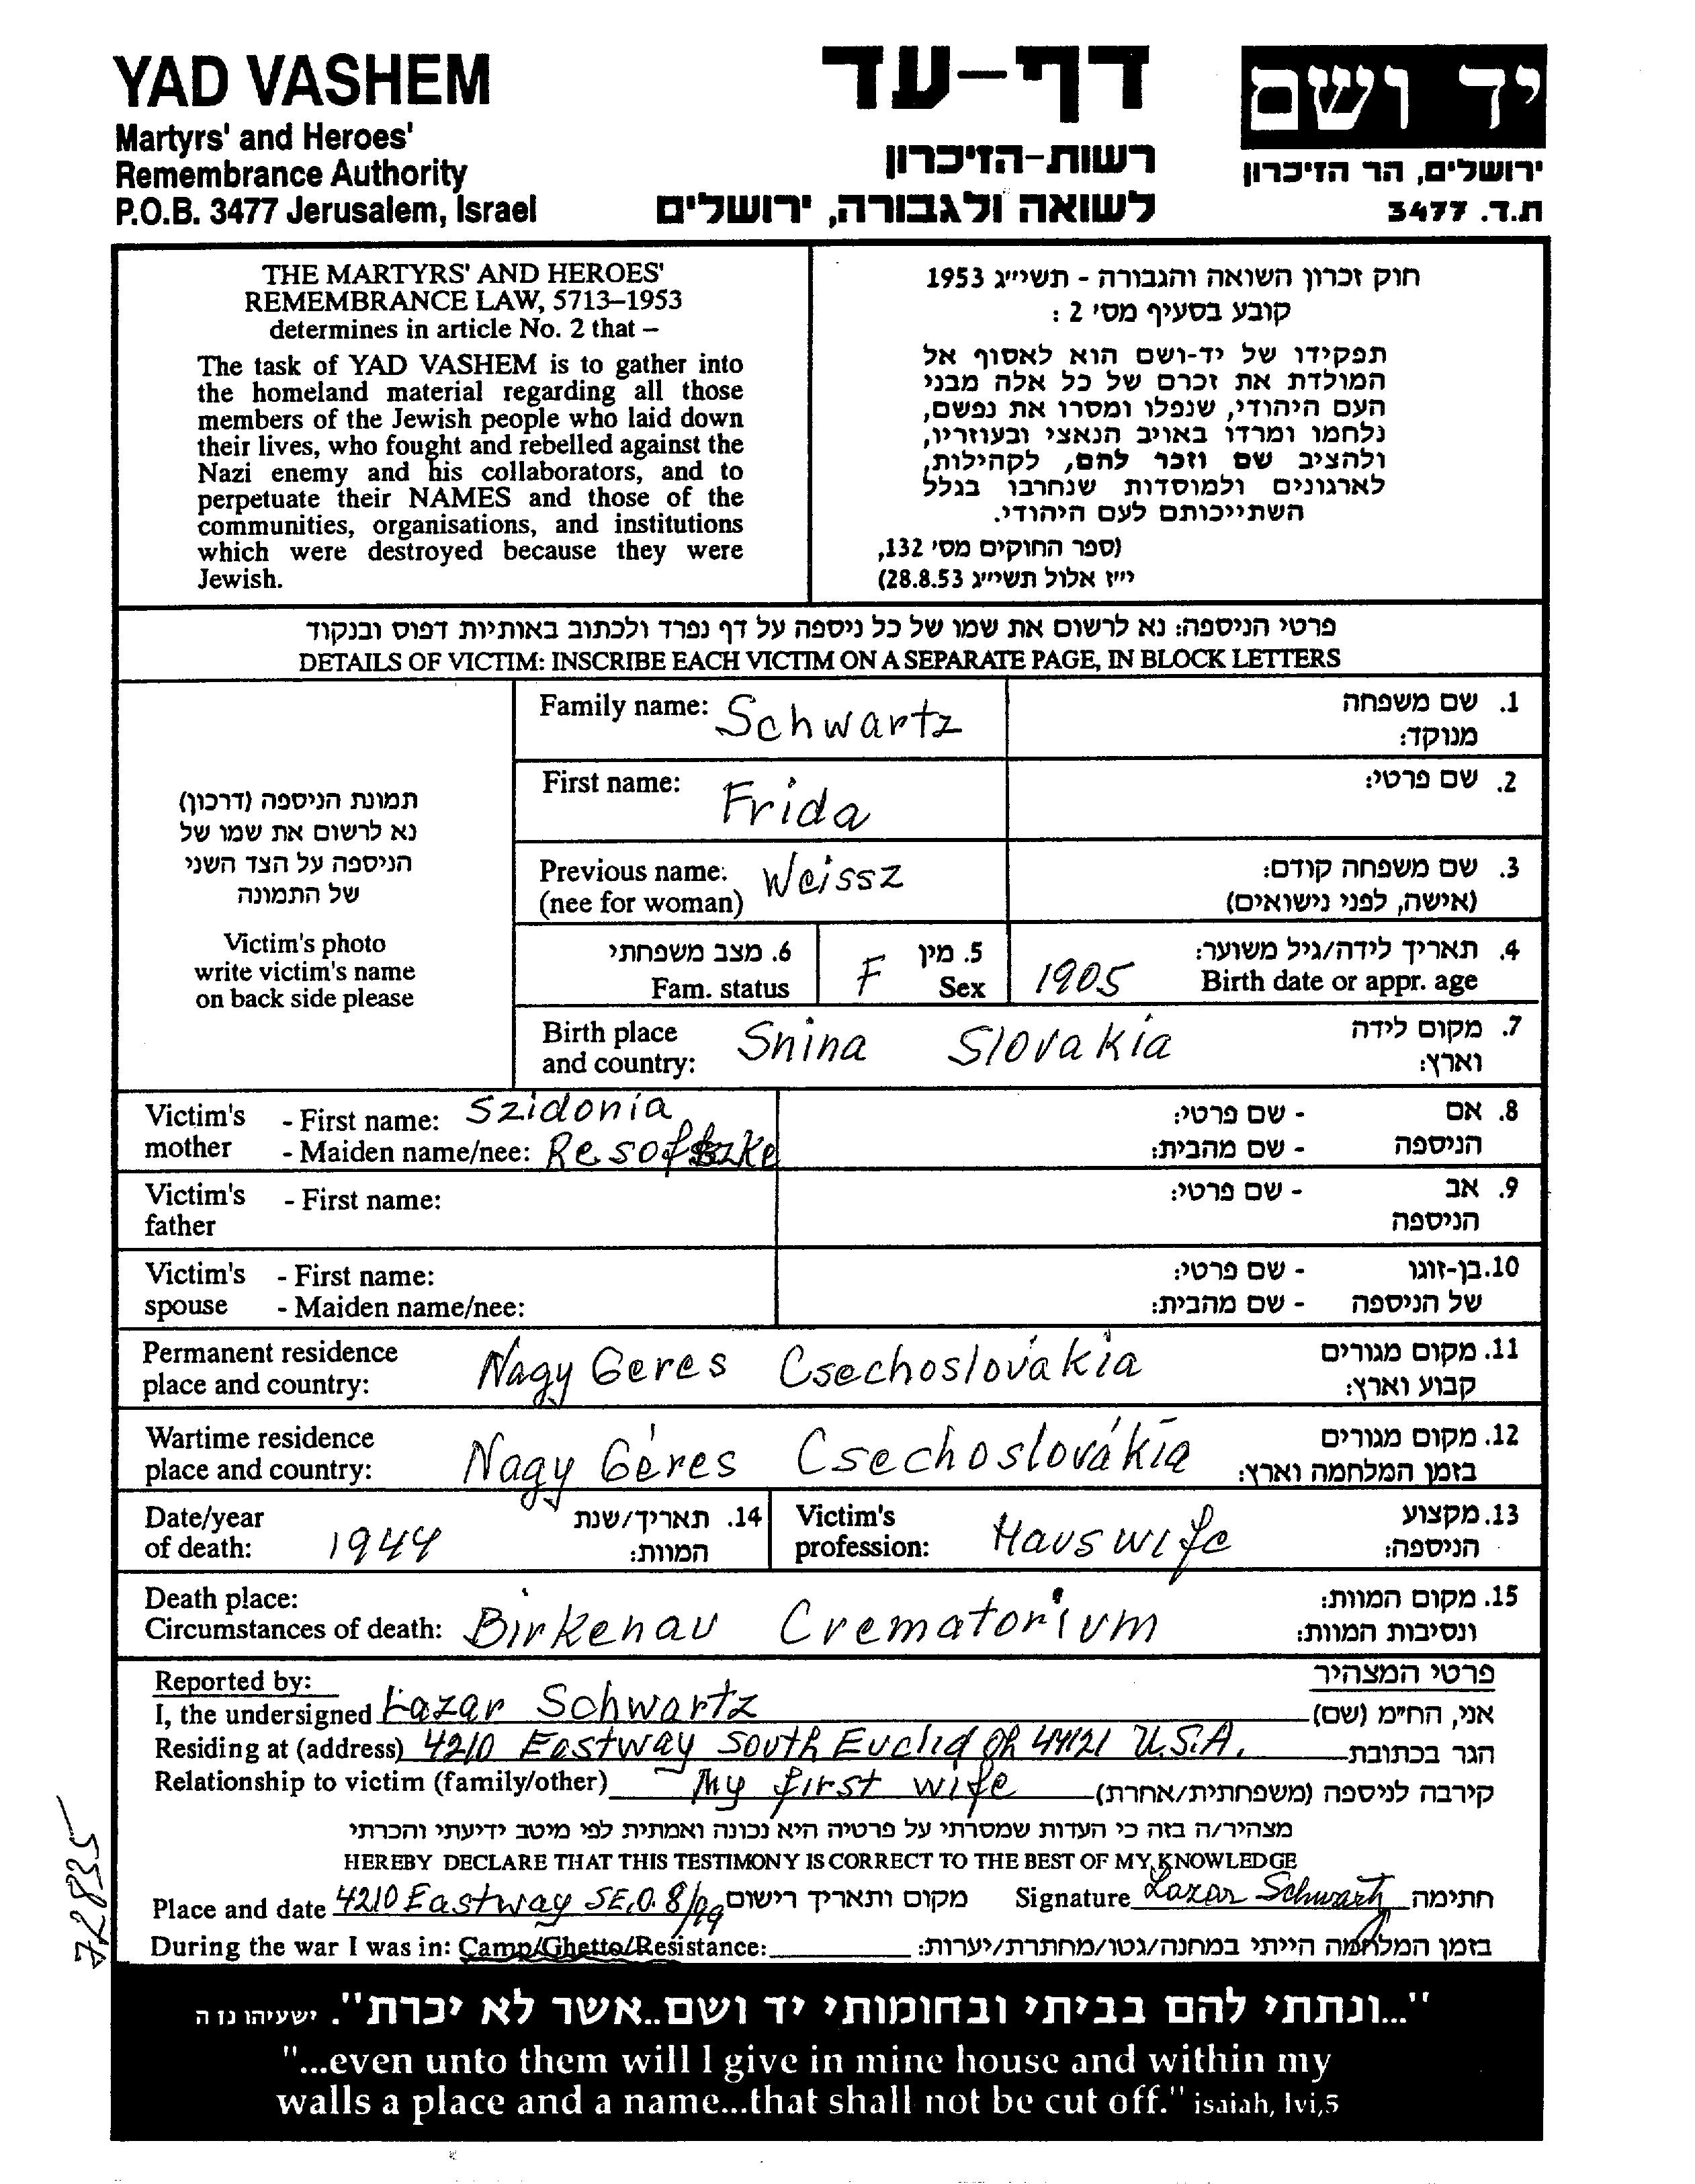 YAD VASHEM
Martyrs' and Heroes'
Remembrance Authority
P.O.B. 3477 Jerusalem, Israel
דף-עד
רשות-הזיכרון
לשואה ולגבורה, ירושלים
יד ושם
ירושלים, הר הזיכרון
ת.ד. 3477
THE MARTYRS' AND HEROES'
REMEMBRANCE LAW, 5713–1953
determines in article No. 2 that –
The task of YAD VASHEM is to gather into
the homeland material regarding all those
members of the Jewish people who laid down
their lives, who fought and rebelled against the
Nazi enemy and his collaborators, and to
perpetuate their NAMES and those of the
communities, organisations, and institutions
which were destroyed because they were
Jewish.
חוק זכרון השואה והגבורה - תשי״ג 1953
קובע בסעיף מס׳ 2 :
תפקידו של יד-ושם הוא לאסוף אל
המולדת את זכרם של כל אלה מבני
העם היהודי, שנפלו ומסרו את נפשם,
נלחמו ומרדו באויב הנאצי ובעוזריו,
ולהציב שם וזכר להם, לקהילות,
לארגונים ולמוסדות שנחרבו בגלל
השתייכותם לעם היהודי.
(ספר החוקים מס׳ 132,
י״ז אלול תשי״ג 28.8.53)
פרטי הניספה: נא לרשום את שמו של כל ניספה על דף נפרד ולכתוב באותיות דפוס ובנקוד
DETAILS OF VICTIM: INSCRIBE EACH VICTIM ON A SEPARATE PAGE, IN BLOCK LETTERS
תמונת הניספה (דרכון)
נא לרשום את שמו של
הניספה על הצד השני
של התמונה
Victim's photo
write victim's name
on back side please
Family name: Schwartz 1. שם משפחה
מנוקד:
First name: Frida 2. שם פרטי:
Previous name: Weissz 3. שם משפחה קודם:
(nee for woman) (אישה, לפני נישואים)
6. מצב משפחתי 5. מין 4. תאריך לידה/גיל משוער:
Fam. status F Sex 1905 Birth date or appr. age
Birth place Snina Slovakia 7. מקום לידה
and country: וארץ:
Victim's - First name: Szidonia - שם פרטי: 8. אם
mother - Maiden name/nee: - שם מהבית: הניספה
Victim's - First name: - שם פרטי: 9. אב
father הניספה
Victim's - First name: - שם פרטי: 10. בן-זוגו
spouse - Maiden name/nee: - שם מהבית: של הניספה
Permanent residence Nagy Geres Csechoslovákia 11. מקום מגורים
place and country: קבוע וארץ:
Wartime residence Nagy Géres Csechoslovákia 12. מקום מגורים
place and country: בזמן המלחמה וארץ:
Date/year 14. תאריך/שנת Victim's 13. מקצוע
of death: 1944 המוות: profession: Hauswife הניספה:
Death place: 15. מקום המוות:
Circumstances of death: Birkenau Crematorium ונסיבות המוות:
Reported by: פרטי המצהיר
I, the undersigned Lazar Schwartz אני, הח״מ (שם)
Residing at (address) 4210 Eastway South Euclid Oh 44121 U.S.A. הגר בכתובת
Relationship to victim (family/other) My first wife קירבה לניספה (משפחתית/אחרת)
מצהיר/ה בזה כי העדות שמסרתי על פרטיה היא נכונה ואמתית לפי מיטב ידיעתי והכרתי
HEREBY DECLARE THAT THIS TESTIMONY IS CORRECT TO THE BEST OF MY KNOWLEDGE
Place and date 4210 Eastway SE,O. 8/99 מקום ותאריך רישום Signature Lazar Schwartz חתימה
During the war I was in: Camp/Ghetto/Resistance: בזמן המלחמה הייתי במחנה/גטו/מחתרת/יערות:
72835
"...ונתתי להם בביתי ובחומותי יד ושם..אשר לא יכרת". ישעיהו נז ה
"...even unto them will I give in mine house and within my
walls a place and a name...that shall not be cut off." isaiah, lvi,5